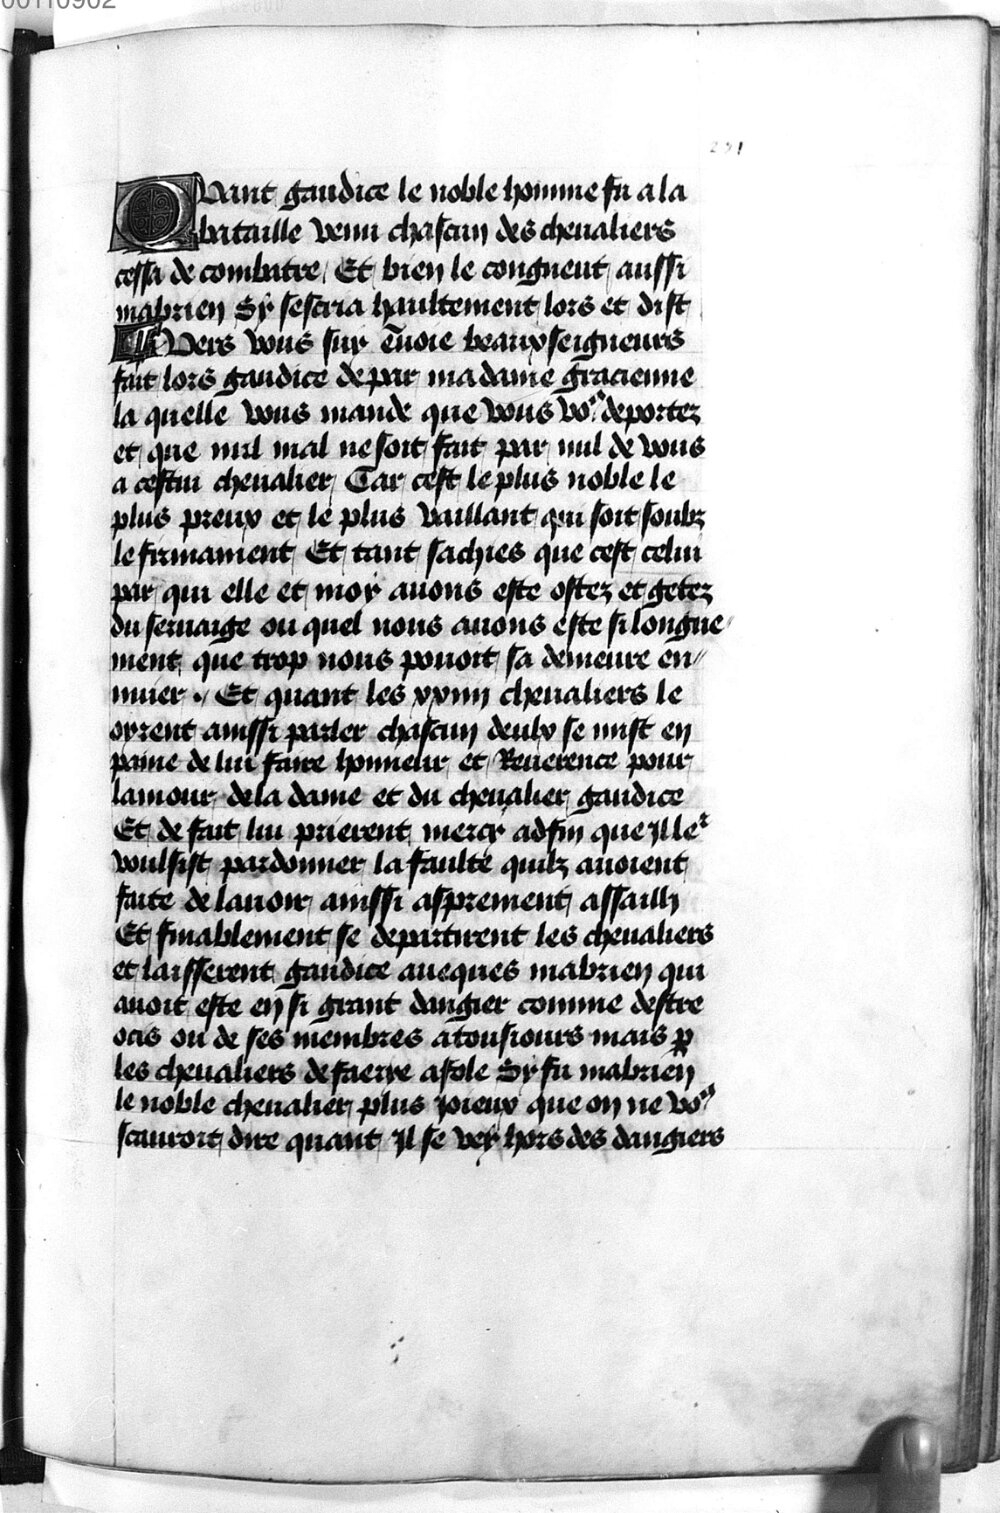 00110902
251
Quant gaudice le noble homme fu a la
bataille venu chascun des cheualiers
cessa de combatre Et bien le congneut aussi
mabrien Sy sescria haultement lors et dist
Vers vous suy Enuoie beaux seigneurs
fait lors gaudice de par madame gracienne
la quelle vous mande que vous vous deportez
et que nul mal ne soit fait par nul de vous
a cestui cheualier Car cest le plus noble le
plus preux et le plus vaillant qui soit soubz
le firmament Et tant sachies que cest celui
par qui elle et moy auons este ostez et getez
du seruaige ou quel nous auons este si longue
ment que trop nous pouoit sa demeure en//
nuier . Et quant les xxiiij cheualiers le
oyrent ainssi parler chascun deulx se mist en
paine de lui faire honneur et Reuerence pour
lamour de la dame et du cheualier gaudice
Et de fait lui prierent mercy adfin que Il le
voulsist pardonner la faulte quilz auoient
faite de lauoir ainssi asprement assailly
Et finablement se departirent les cheualiers
et laisserent gaudice aueques mabrien qui
auoit este en si grant dangier comme destre
ocis ou de ses membres a tousiours mais p
les cheualiers de faerye afole Sy fu mabrien
le noble cheualier plus ioieux que on ne vous
scauroit dire quant Il se vey hors des dangiers